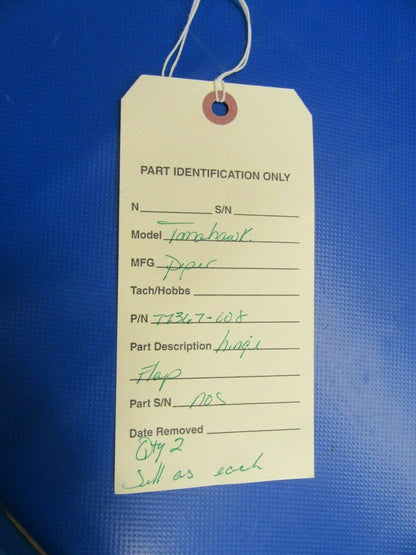 PART IDENTIFICATION ONLY
N___________ S/N__________
Model Tomahawk.
MFG Piper
Tach/Hobbs
P/N 77367-608
Part Description hinge
Flap
Part S/N nos
Date Removed
Qty 2
Sell as each